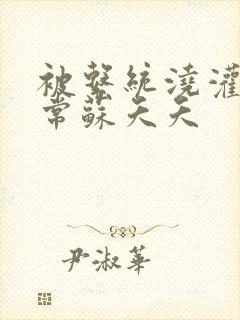 被繫統澆灌
常蘇天天
尹淑華